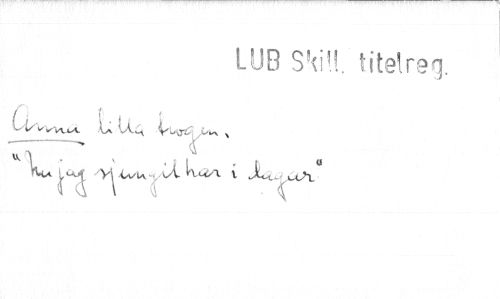 LUB Skill. titelreg.
Anna lilla trogen.
"Nu jag sjungit har i dagar"